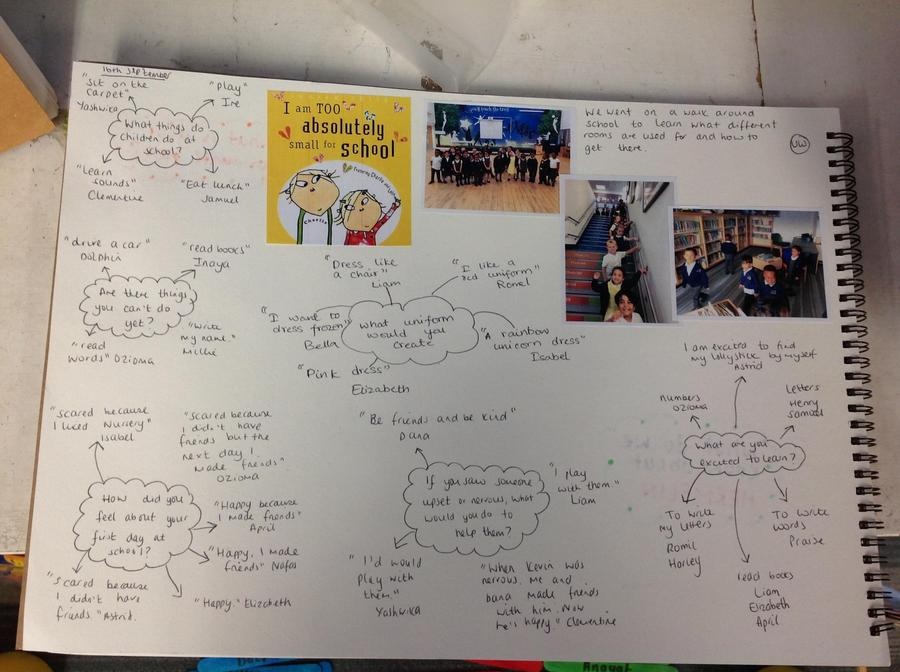 16th September
"Sit on the
carpet"
Yashwika
"play"
Ire
What things do
children do at
school?
"learn
sounds"
Clementine
"Eat lunch"
Samuel
I am TOO
absolutely
small for school
We went on a walk around
school to learn what different
rooms are used for and how to
get there.
UW
"drive a car"
Dolphin
"read books"
Inaya
Are there things
you can't do
yet?
"read
words" Ozioma
"Write
my name"
Millie
"Dress like
a chair"
Liam
"I like a
red uniform"
Romel
"I want to
dress frozen"
Bella
What uniform
would you
create
"A rainbow
unicorn dress"
Isabel
"Pink dress"
Elizabeth
I am excited to find
my lollystick by myself
Astrid
numbers
Ozioma
Letters
Henry
Samuel
What are you
excited to learn?
To write
my letters
Romil
Harley
To write
words
Praise
read books
Liam
Elizabeth
April
"Scared because
I liked Nursery"
Isabel
"Scared because
I didn't have
friends but the
next day I
made friends"
Ozioma
How did you
feel about your
first day at
school?
"Happy because
I made friends"
April
"Happy, I made
friends" Nafas
"Happy." Elizabeth
"Scared because
I didn't have
friends." Astrid.
"Be friends and be kind"
Dana
If you saw someone
upset or nervous, what
would you do to
help them?
"I play
with them."
Liam
"I'd would
play with
them."
Yashwika
"When Kevin was
nervous. Me and
Dana made friends
with him. Now
he's happy." Clementine